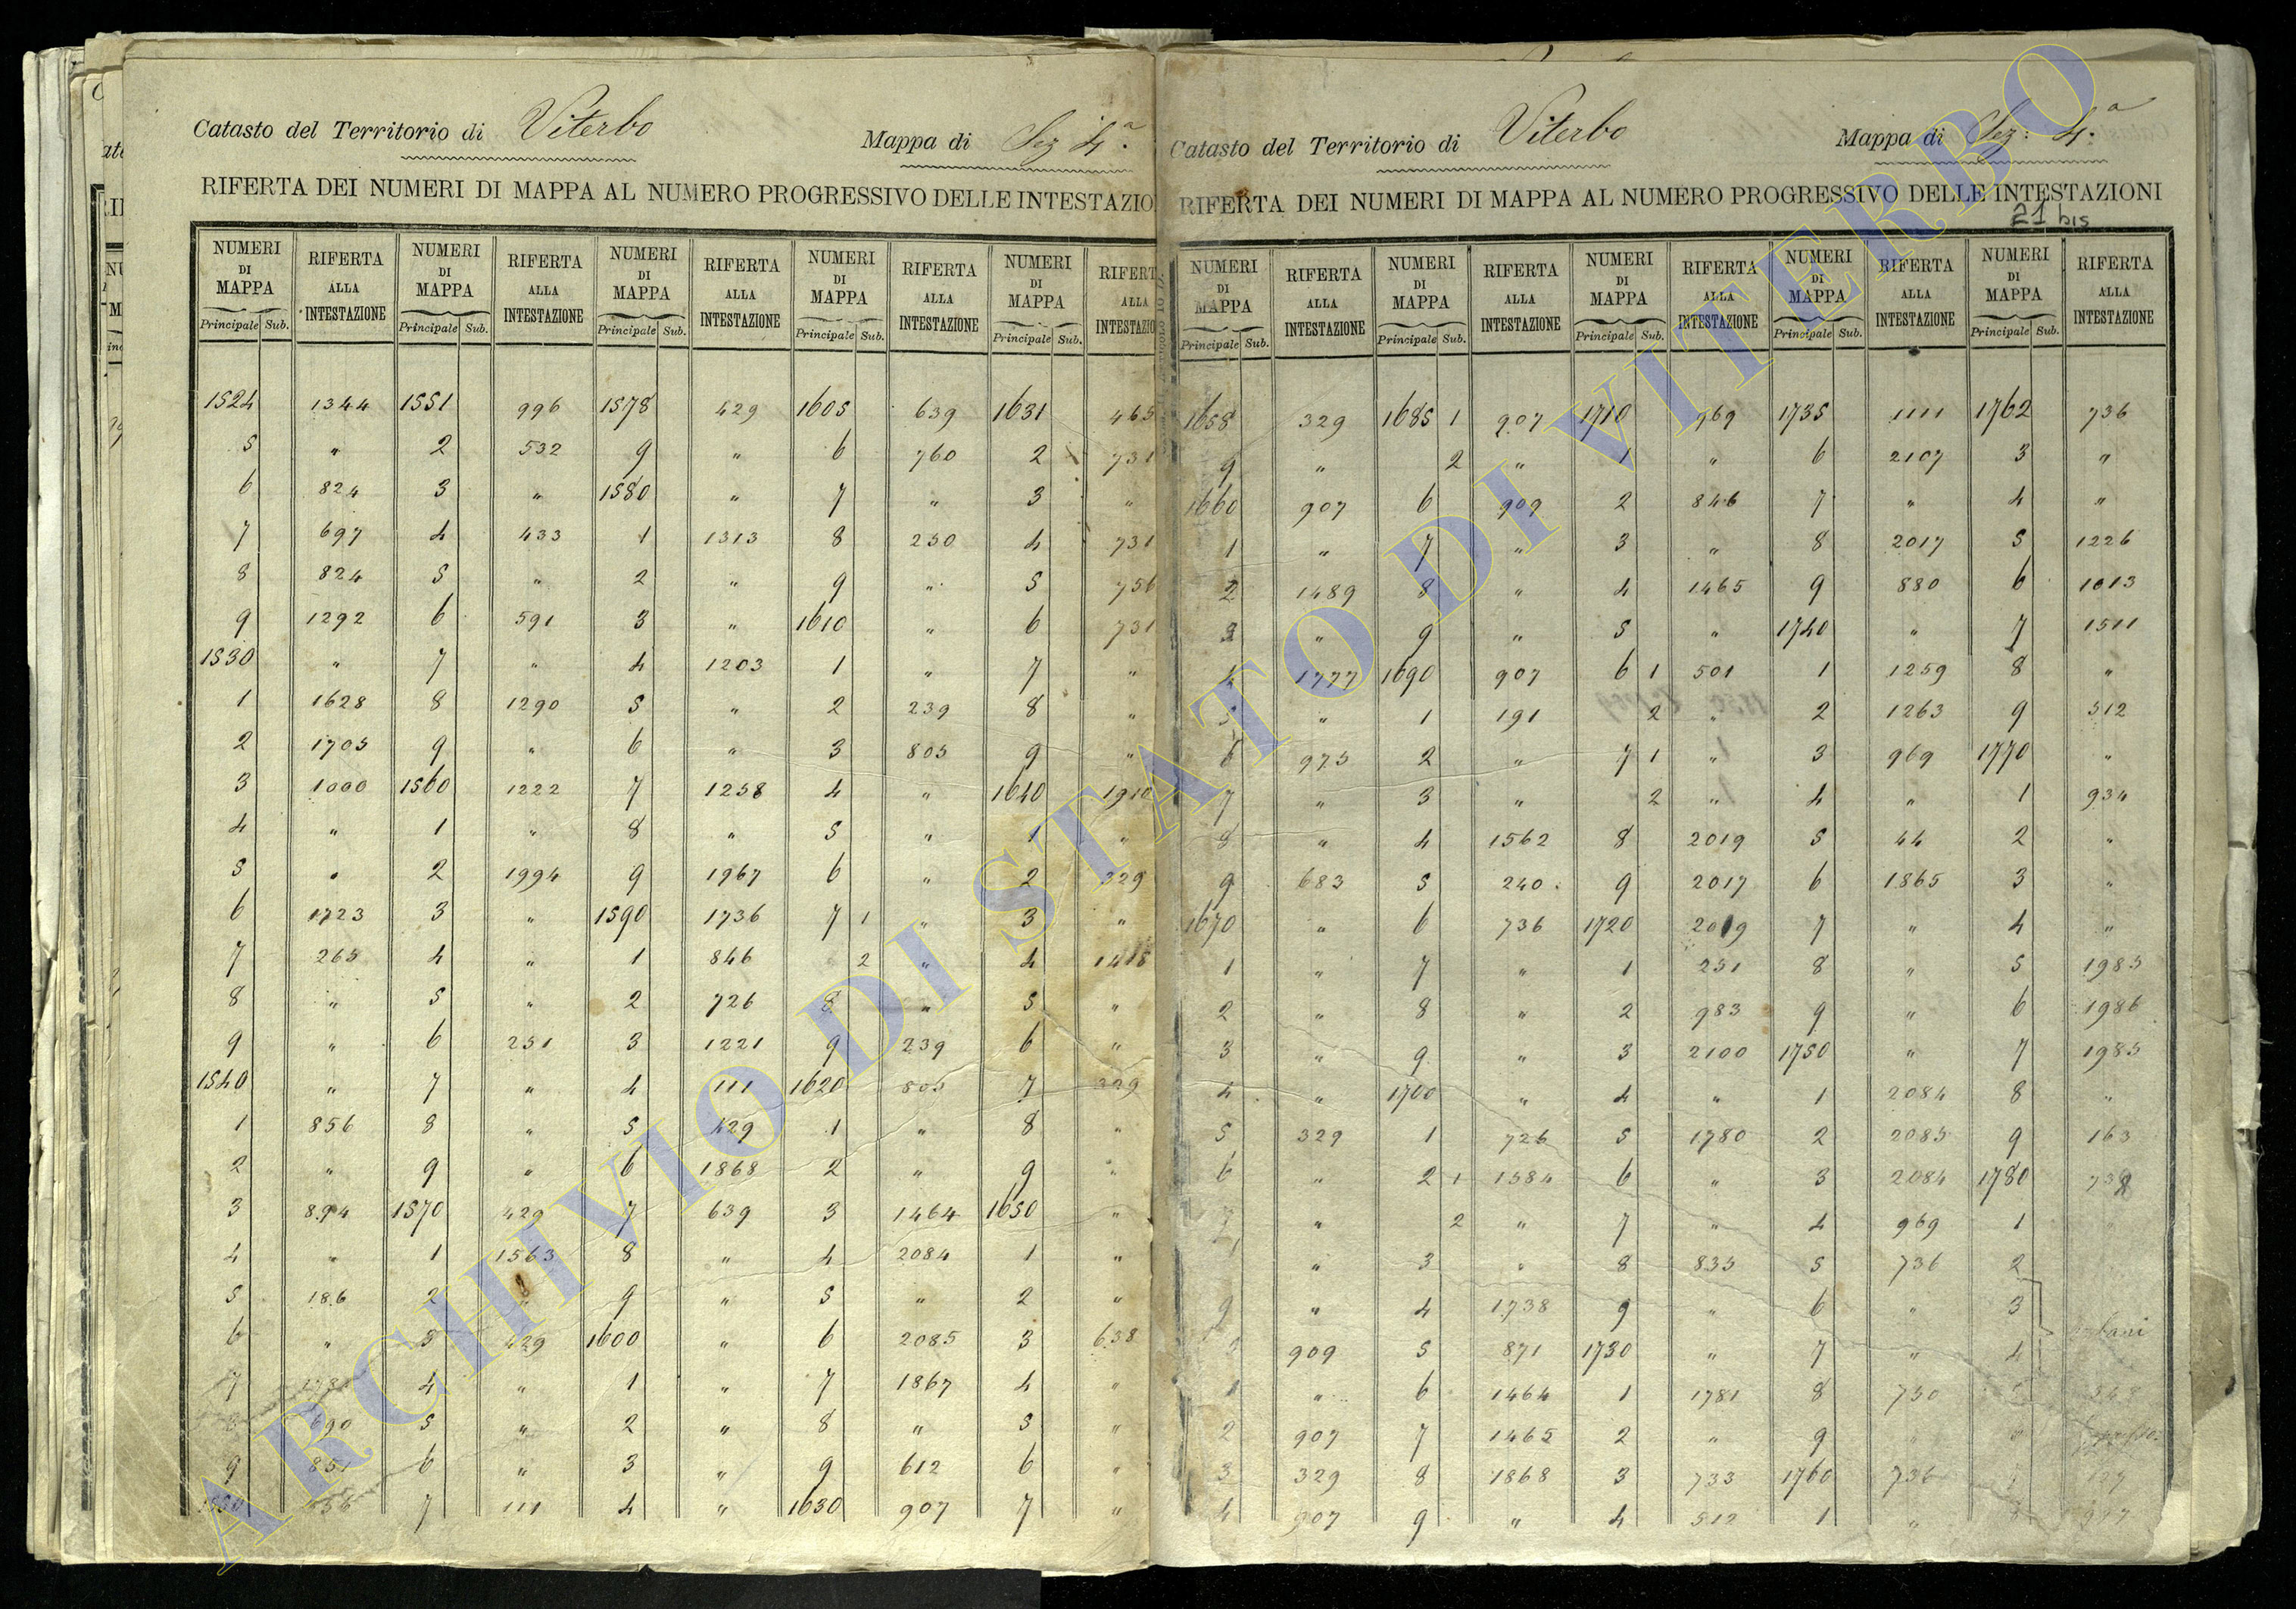 Catasto del Territorio di Viterbo Mappa di Sez 4.a
RIFERTA DEI NUMERI DI MAPPA AL NUMERO PROGRESSIVO DELLE INTESTAZIO
NUMERI DI MAPPA RIFERTA ALLA INTESTAZIONE NUMERI DI MAPPA RIFERTA ALLA INTESTAZIONE NUMERI DI MAPPA RIFERTA ALLA INTESTAZIONE NUMERI DI MAPPA RIFERTA ALLA INTESTAZIONE NUMERI DI MAPPA RIFERT ALLA INTESTAZIO
Principale Sub. Principale Sub. Principale Sub. Principale Sub. Principale Sub.
1524 1344 1551 996 1578 429 1605 639 1631 465
5 " 2 532 9 " 6 760 2 731
6 824 3 " 1580 " 7 " 3 "
7 697 4 433 1 1313 8 250 4 731
8 824 5 " 2 " 9 " 5 756
9 1292 6 591 3 " 1610 " 6 731
1530 " 7 " 4 1203 1 " 7 "
1 1628 8 1290 5 " 2 239 8 "
2 1705 9 " 6 " 3 805 9 "
3 1000 1560 1222 7 1258 4 " 1640 1910
4 " 1 " 8 " 5 " 1 "
5 " 2 1994 9 1967 6 " 2 329
6 1723 3 " 1590 1736 7 1 " 3 "
7 265 4 " 1 846 2 " 4 1418
8 " 5 " 2 726 8 " 5 "
9 " 6 251 3 1221 9 239 6 "
1540 " 7 " 4 111 1620 805 7 329
1 856 8 " 5 429 1 " 8 "
2 " 9 " 6 1868 2 " 9 "
3 894 1570 429 7 639 3 1464 1650 "
4 " 1 1563 8 " 4 2084 1 "
5 186 2 " 9 " 5 " 2 "
6 " 3 429 1600 " 6 2085 3 638
7 4 " 1 " 7 1867 4 "
690 5 " 2 " 8 " 5 "
9 851 6 " 3 " 9 612 6 "
7 111 4 " 1630 907 7 "
Catasto del Territorio di Viterbo Mappa di Sez: 4.a
RIFERTA DEI NUMERI DI MAPPA AL NUMERO PROGRESSIVO DELLE INTESTAZIONI
21 bis
NUMERI DI MAPPA RIFERTA ALLA INTESTAZIONE NUMERI DI MAPPA RIFERTA ALLA INTESTAZIONE NUMERI DI MAPPA RIFERTA ALLA INTESTAZIONE NUMERI DI MAPPA RIFERTA ALLA INTESTAZIONE NUMERI DI MAPPA RIFERTA ALLA INTESTAZIONE
Principale Sub. Principale Sub. Principale Sub. Principale Sub. Principale Sub.
1658 329 1685 1 907 1710 969 1735 1111 1762 736
9 " 2 " 1 " 6 2107 3 "
1660 907 6 909 2 846 7 " 4 "
1 " 7 " 3 " 8 2017 5 1226
2 1489 8 " 4 1465 9 880 6 1013
3 " 9 " 5 " 1740 " 7 1511
4 1777 1690 907 6 1 501 1 1259 8 "
5 " 1 191 2 " 2 1263 9 512
6 975 2 " 7 1 " 3 969 1770 "
7 " 3 " 2 " 4 " 1 934
8 " 4 1562 8 2019 5 44 2 "
9 683 5 240 9 2017 6 1865 3 "
1670 " 6 736 1720 2019 7 " 4 "
1 " 7 " 1 251 8 " 5 1985
2 " 8 " 2 983 9 " 6 1986
3 " 9 " 3 2100 1750 " 7 1985
4 " 1700 " 4 " 1 2084 8 "
5 329 1 726 5 1780 2 2085 9 163
6 " 2 1 1584 6 " 3 2084 1780 738
" 2 " 7 " 4 969 1 "
" 3 " 8 835 5 736 2
9 " 4 1738 9 " 6 " 3
909 5 871 1730 " 7 " 4
1 " 6 1464 1 1781 8 730
2 907 7 1465 2 " 9
3 329 8 1868 3 733 1760 736 127
4 907 9 " 4 512 1 "
ARCHIVIO DI STATO DI VITERBO